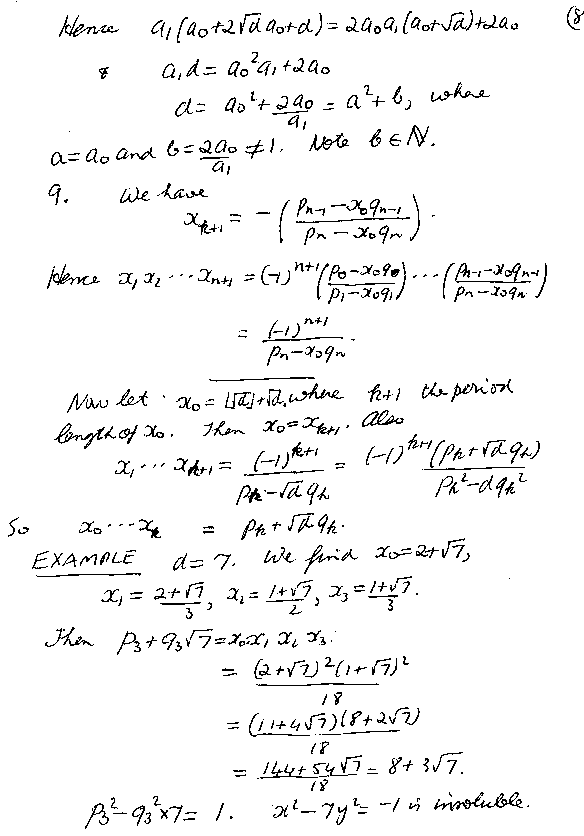 (8
Hence a₁(a₀+2√d a₀+d) = 2a₀a₁(a₀+√d)+2a₀
& a₁d = a₀²a₁+2a₀
d = a₀²+2a₀/a₁ = a²+b, where
a=a₀ and b=2a₀/a₁ ≠ 1. Note b∈ℕ.
9. We have
xₙ₊₁ = -((pₙ₋₁-x₀qₙ₋₁)/(pₙ-x₀qₙ)).
Hence x₁x₂⋯xₙ₊₁ = (-1)ⁿ⁺¹((p₀-x₀q₀)/(p₁-x₀q₁))⋯((pₙ₋₁-x₀qₙ₋₁)/(pₙ-x₀qₙ))
= (-1)ⁿ⁺¹/(pₙ-x₀qₙ).
Now let x₀=[√d]+√d, where k+1 the period
length of x₀. Then x₀=xₖ₊₁. Also
x₁⋯xₖ₊₁ = (-1)ᵏ⁺¹/(pₖ-√d qₖ) = (-1)ᵏ⁺¹(pₖ+√d qₖ)/(pₖ²-dqₖ²)
So x₀⋯xₖ = pₖ+√d qₖ.
EXAMPLE d=7. We find x₀=2+√7,
x₁=(2+√7)/3, x₂=(1+√7)/2, x₃=(1+√7)/3.
Then p₃+q₃√7=x₀x₁x₂x₃.
= (2+√7)²(1+√7)²/18
= (11+4√7)(8+2√7)/18
= (144+54√7)/18 = 8+3√7.
p₃²-q₃²×7=1. x²-7y²=-1 is insoluble.